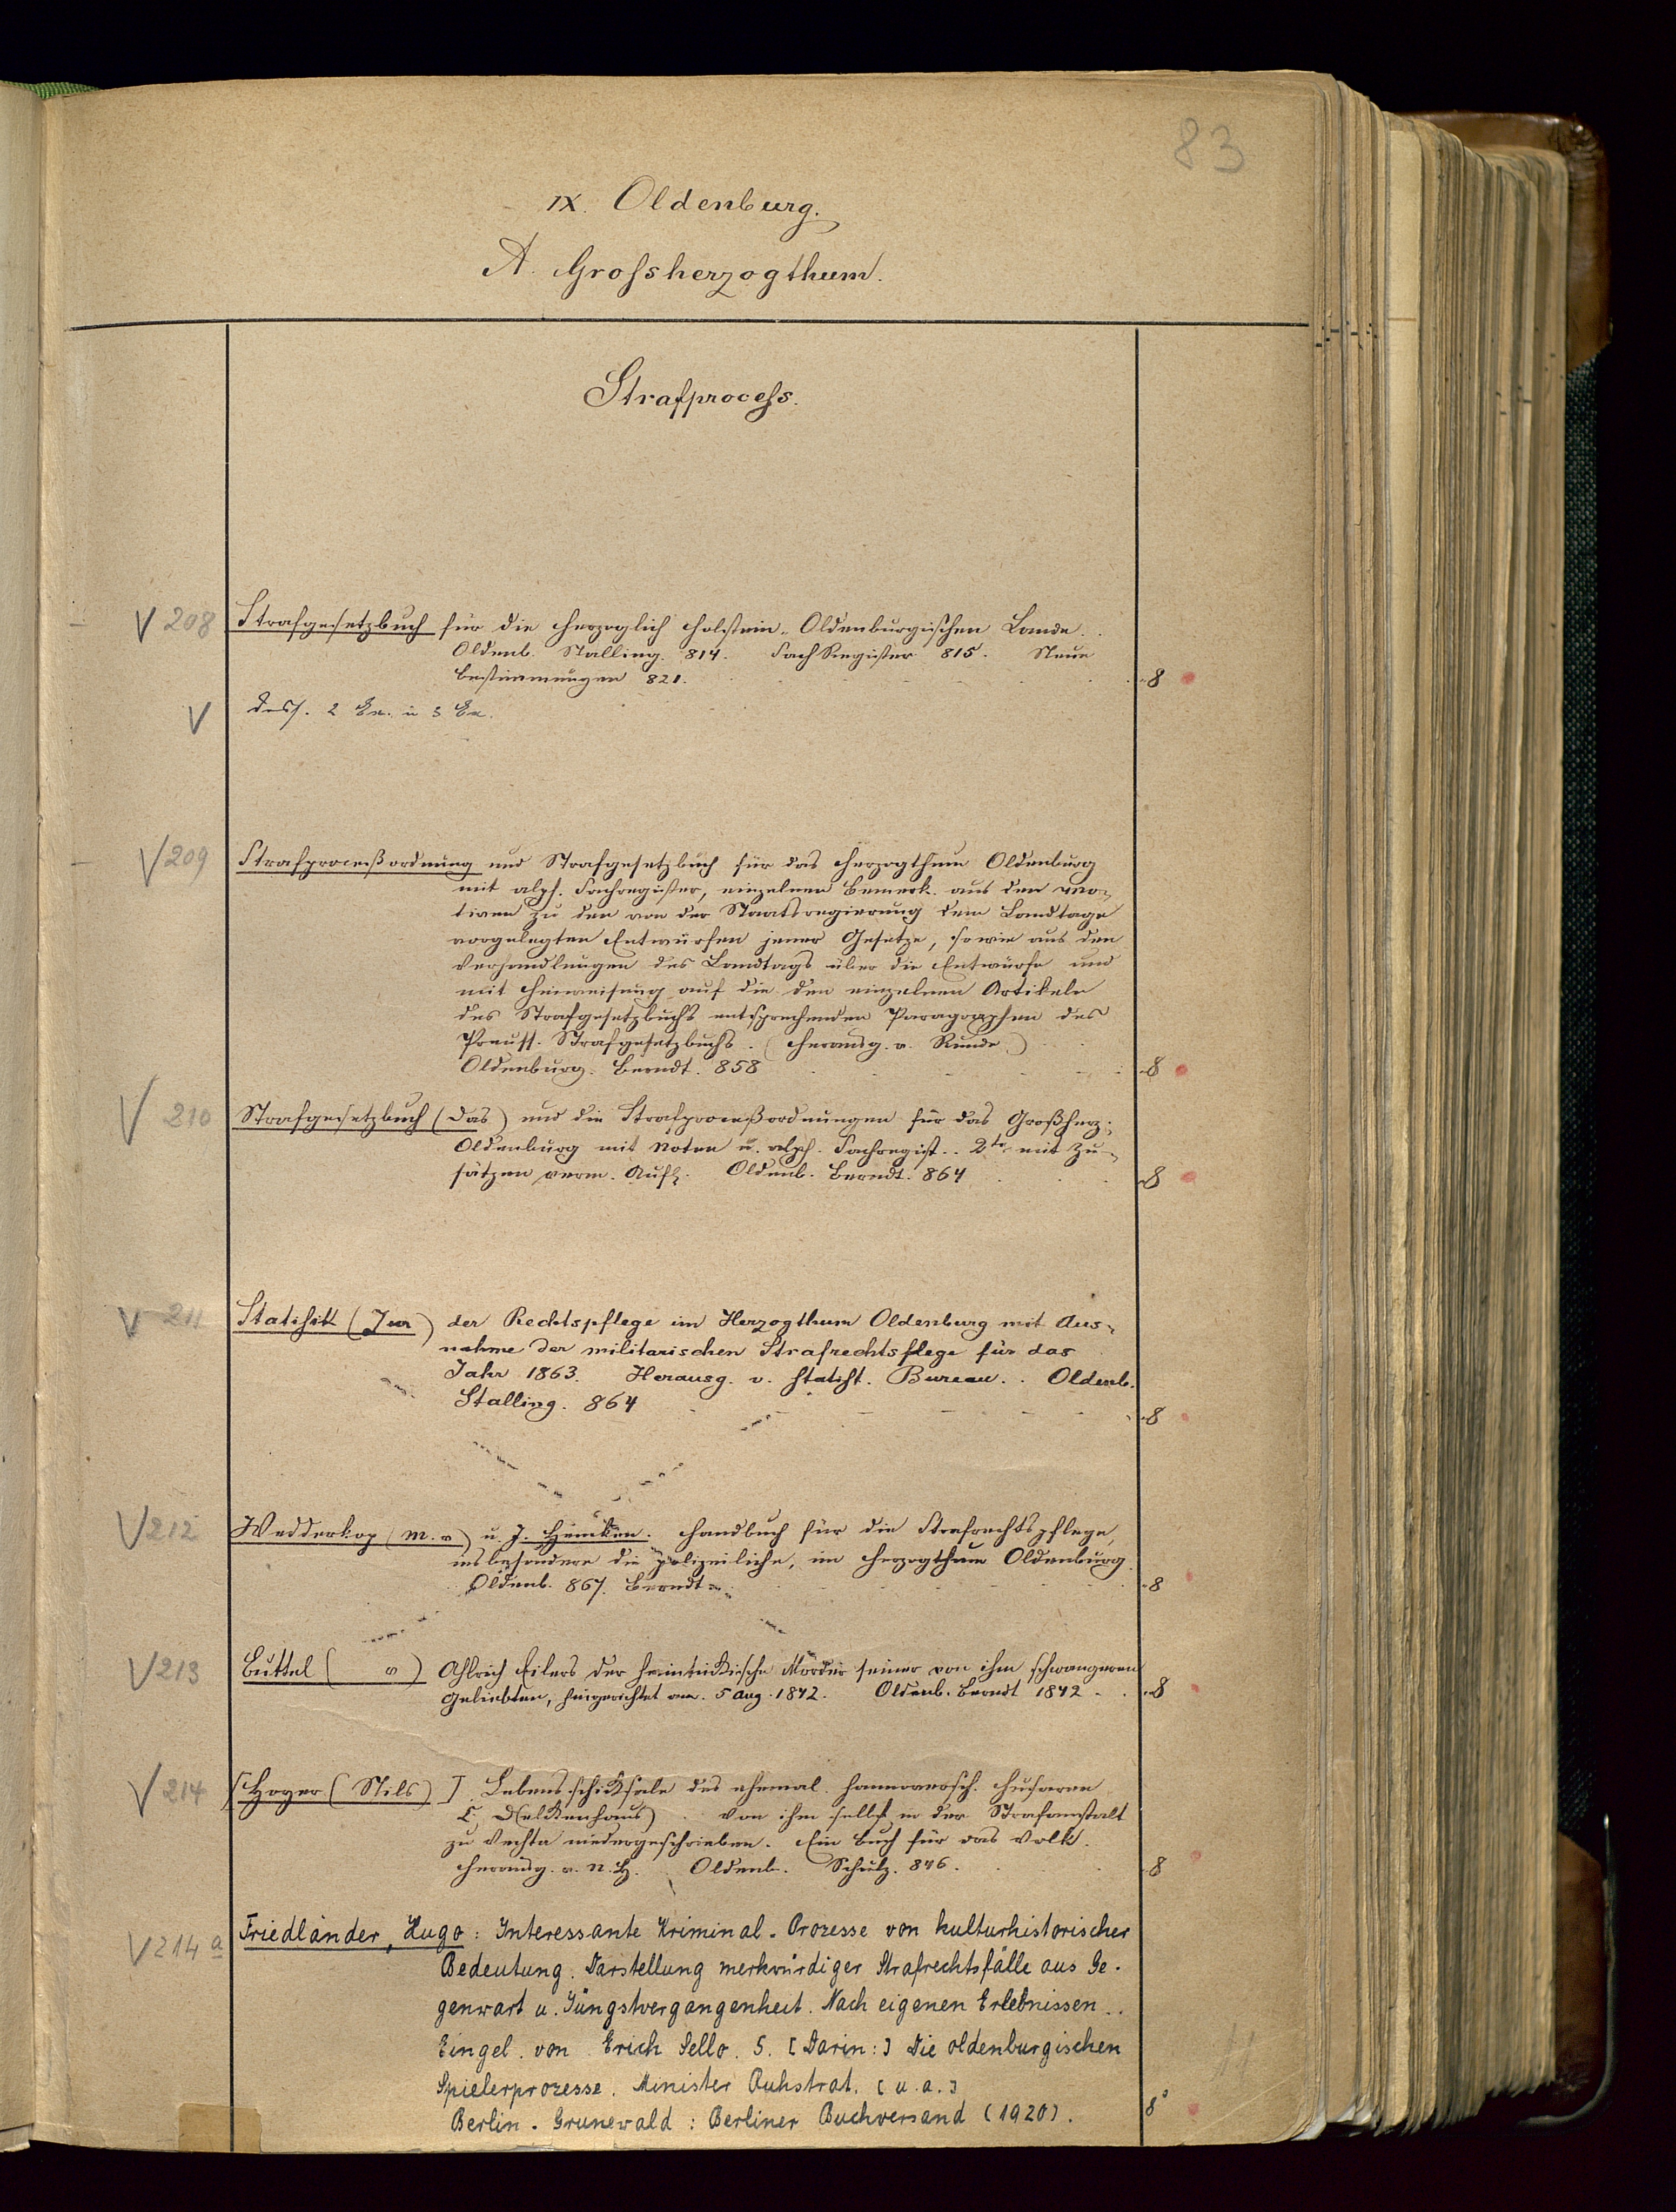 83
IX. Oldenburg.
A. Grossherzogthum.
Strafprocess.
V 208 Strafgesetzbuch für die Herzoglich Holstein-Oldenburgischen Lande.
Oldenb. Stalling. 814. Sach Register 815. Neue
Bestimmungen 821. 8
V Dass. 2 Ex. u 3 Ex.
V 209 Strafproceßordnung und Strafgesetzbuch für das Herzogthum Oldenburg
mit alph. Sachregister, einzelnen Bemerk. aus den Mo-
tiven zu den von der Staatsregierung dem Landtage
vorgelegten Entwürfen jener Gesetze, sowie aus den
Verhandlungen des Landtags über die Entwürfe und
mit Hinweisung auf die den einzelnen Artikeln
des Strafgesetzbuchs entsprechenden Paragraphen des
Preuss. Strafgesetzbuchs. (Herausg. v. Runde)
Oldenburg. Berndt. 858 8
V 210 Strafgesetzbuch (Das) und die Strafproceßordnungen für das Großherz.
Oldenburg mit Noten u. alph. Sachregist. 2te mit Zu-
sätzen verm. Aufl. Oldenb. Berndt. 864 8
V 211 Statistik (Jur) der Rechtspflege im Herzogthum Oldenburg mit Aus-
nahme der militarischen Strafrechtsflege für das
Jahr 1863. Herausg. v. statist. Bureau. Oldenb.
Stalling. 864 8
V 212 Wedderkop (M. v) u. J. Heinken. Handbuch für die Strafrechtspflege,
insbesondere die polizeiliche, im Herzogthum Oldenburg
Oldenb. 867. Berndt 8
V 213 Buttel ( v) Ahlrich Eilers der heimtükische Mörder seiner von ihm schwangeren
Geliebten, hingerichtet am 5 Aug. 1842. Oldenb. Berndt 1842 8
V 214 [Hoyer (Nils)] Lebensschiksale des ehemal. hannoversch. Husaren
D(elkenhaus) von ihm selbst in der Strafanstalt
zu Vechta niedergeschrieben. Ein Buch für das Volk.
Herausg. v. N. H. Oldenb. Schulz. 846. 8
V 214 a Friedländer, Hugo: Interessante Kriminal-Prozesse von kulturhistorischer
Bedeutung. Darstellung merkwürdiger Strafrechtsfälle aus Ge-
genwart u. Jüngstvergangenheit. Nach eigenen Erlebnissen..
Eingel. von Erich Sello. 5. [Darin:] Die oldenburgischen
Spielerprozesse. Minister Ruhstrat. [u.a.]
Berlin-Grunewald: Berliner Buchversand (1920). 8°